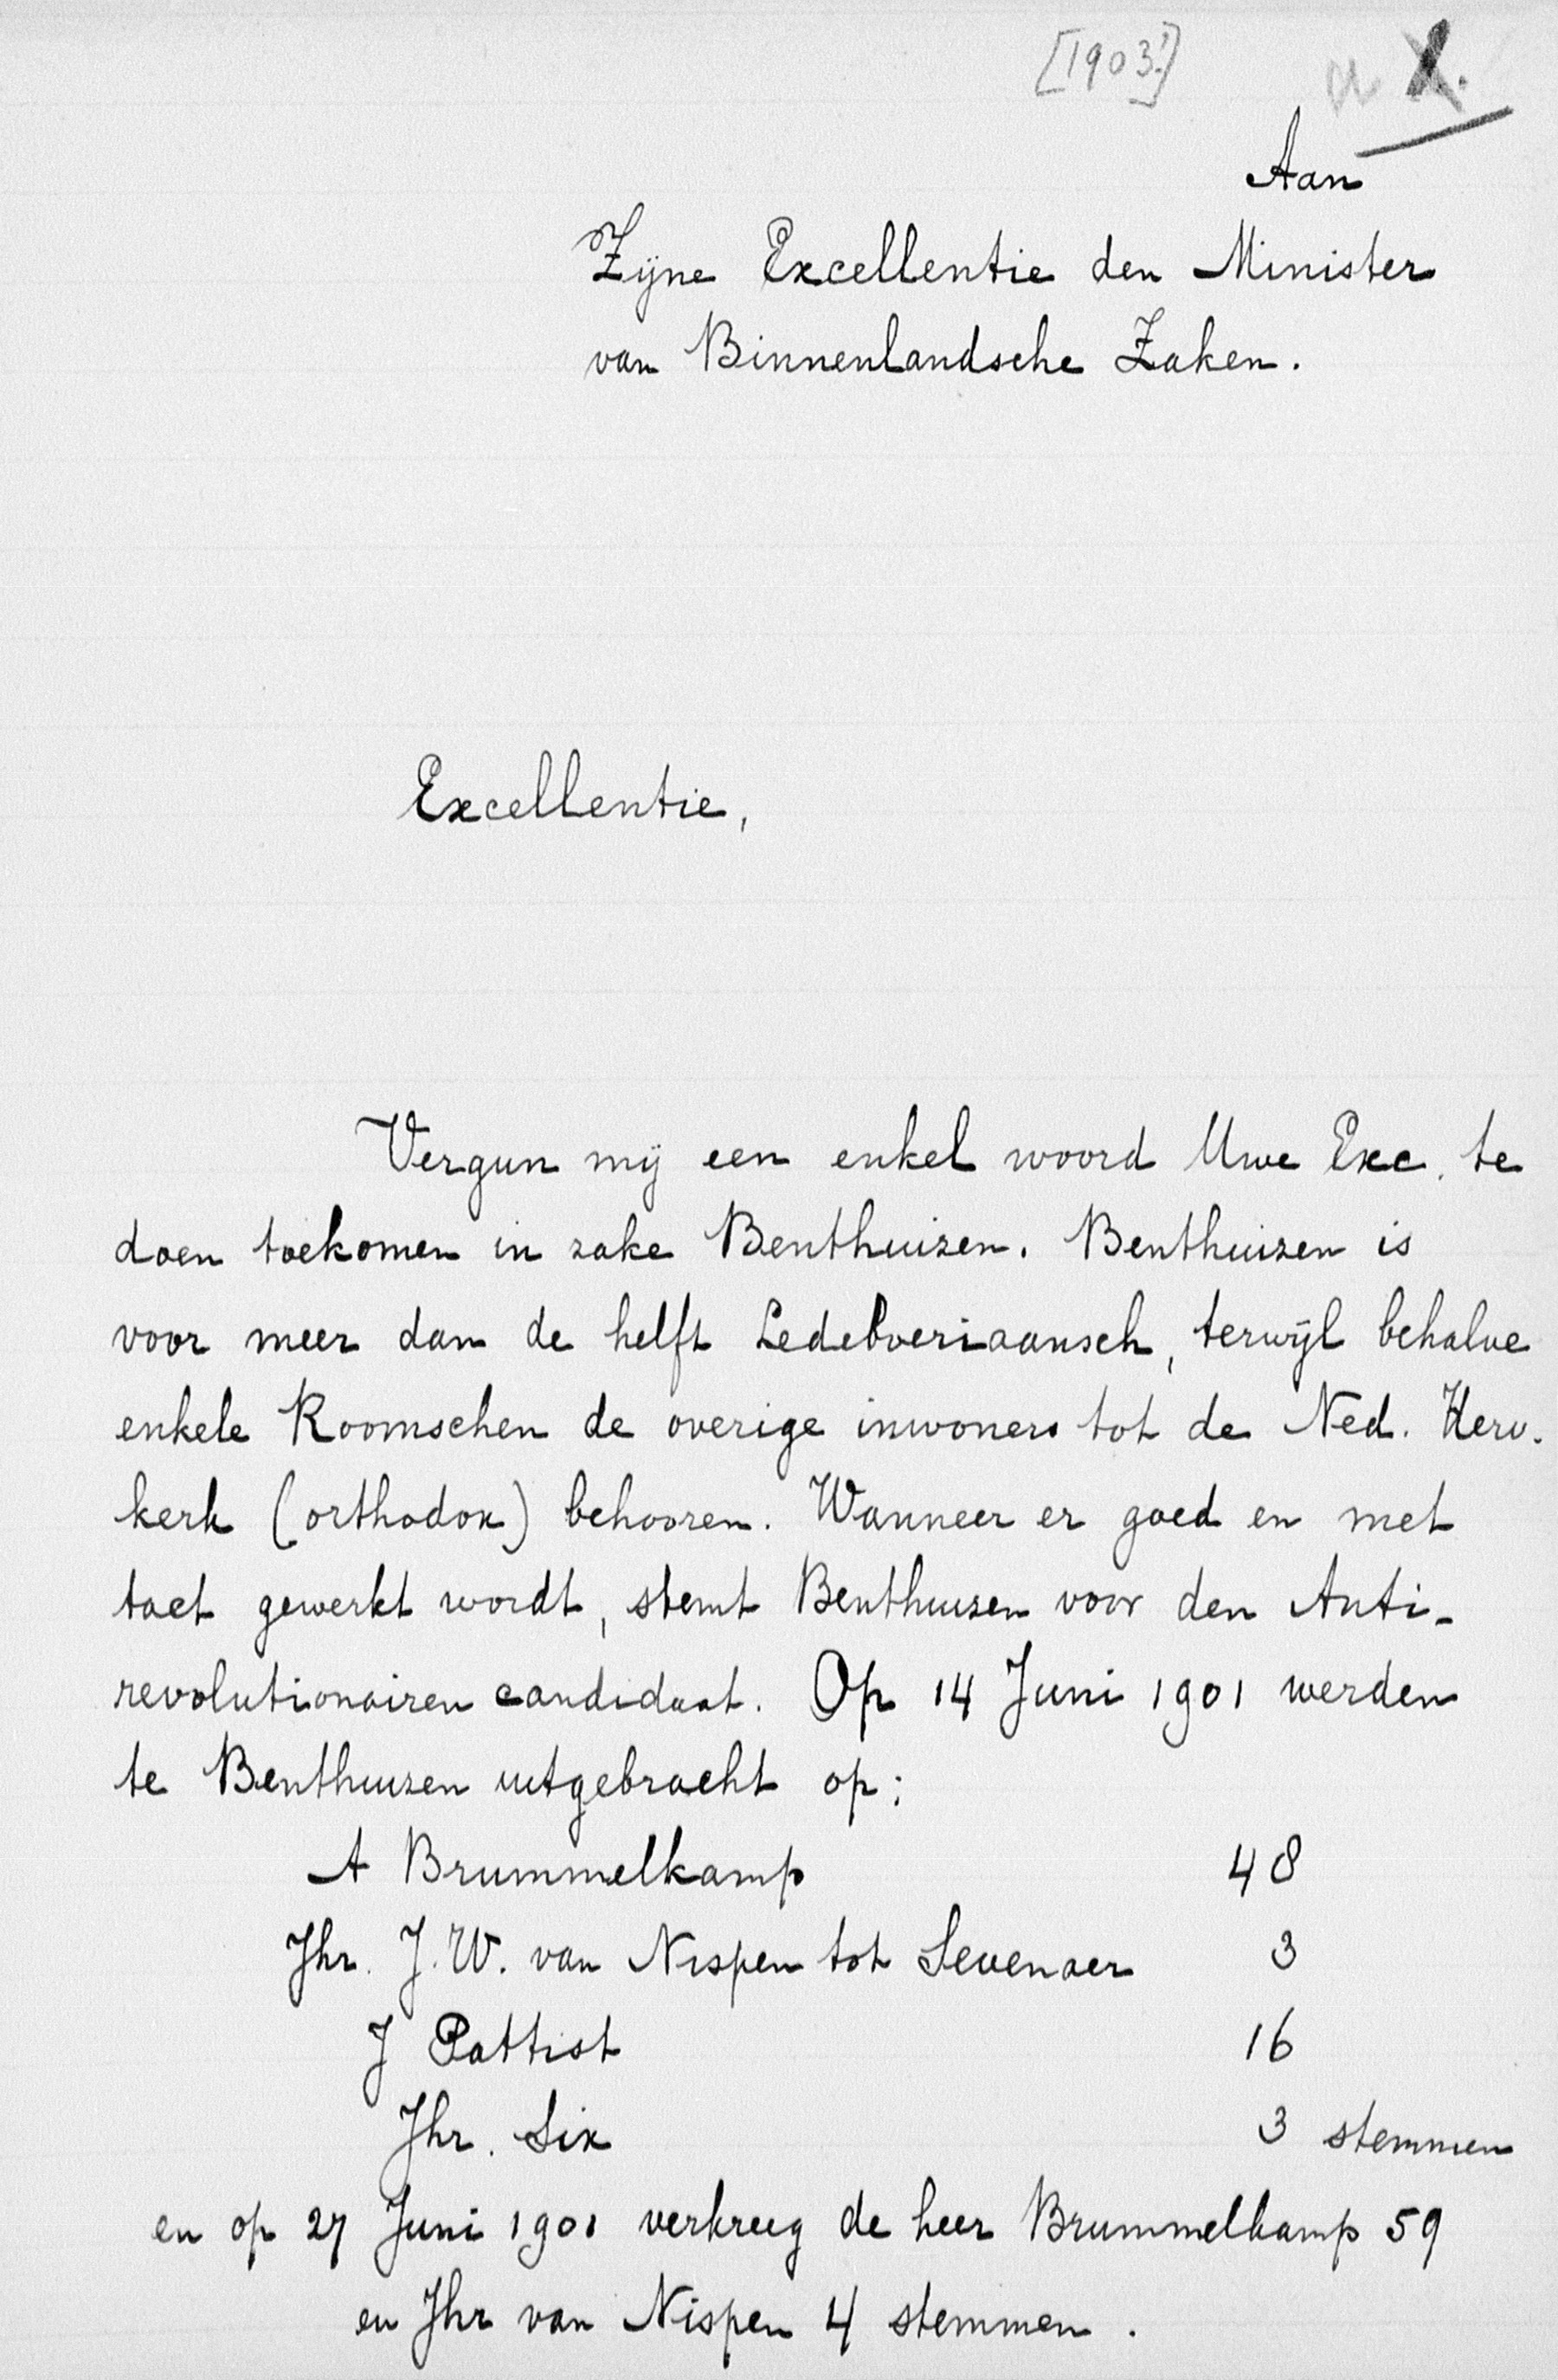 [1903?]
Aan
Zijne Excellentie den Minister
van Binnenlandsche Zaken.
Excellentie,
Vergun mij een enkel woord Uwe Exc. te
doen toekomen in zake Benthuizen. Benthuizen is
voor meer dan de helft Ledeboeriaansch, terwijl behalve
enkele Roomschen de overige inwoners tot de Ned. Herv.
kerk (orthodox) behooren. Wanneer er goed en met
tact gewerkt wordt, stemt Benthuizen voor den Anti-
revolutionairen candidaat. Op 14 Juni 1901 werden
te Benthuizen uitgebracht op:
A Brummelkamp 48
Jhr. J. W. van Nispen tot Sevenaer 3
J Pattist 16
Jhr. Six 3 stemmen
en op 27 Juni 1901 verkreeg de heer Brummelkamp 59
en Jhr van Nispen 4 stemmen.